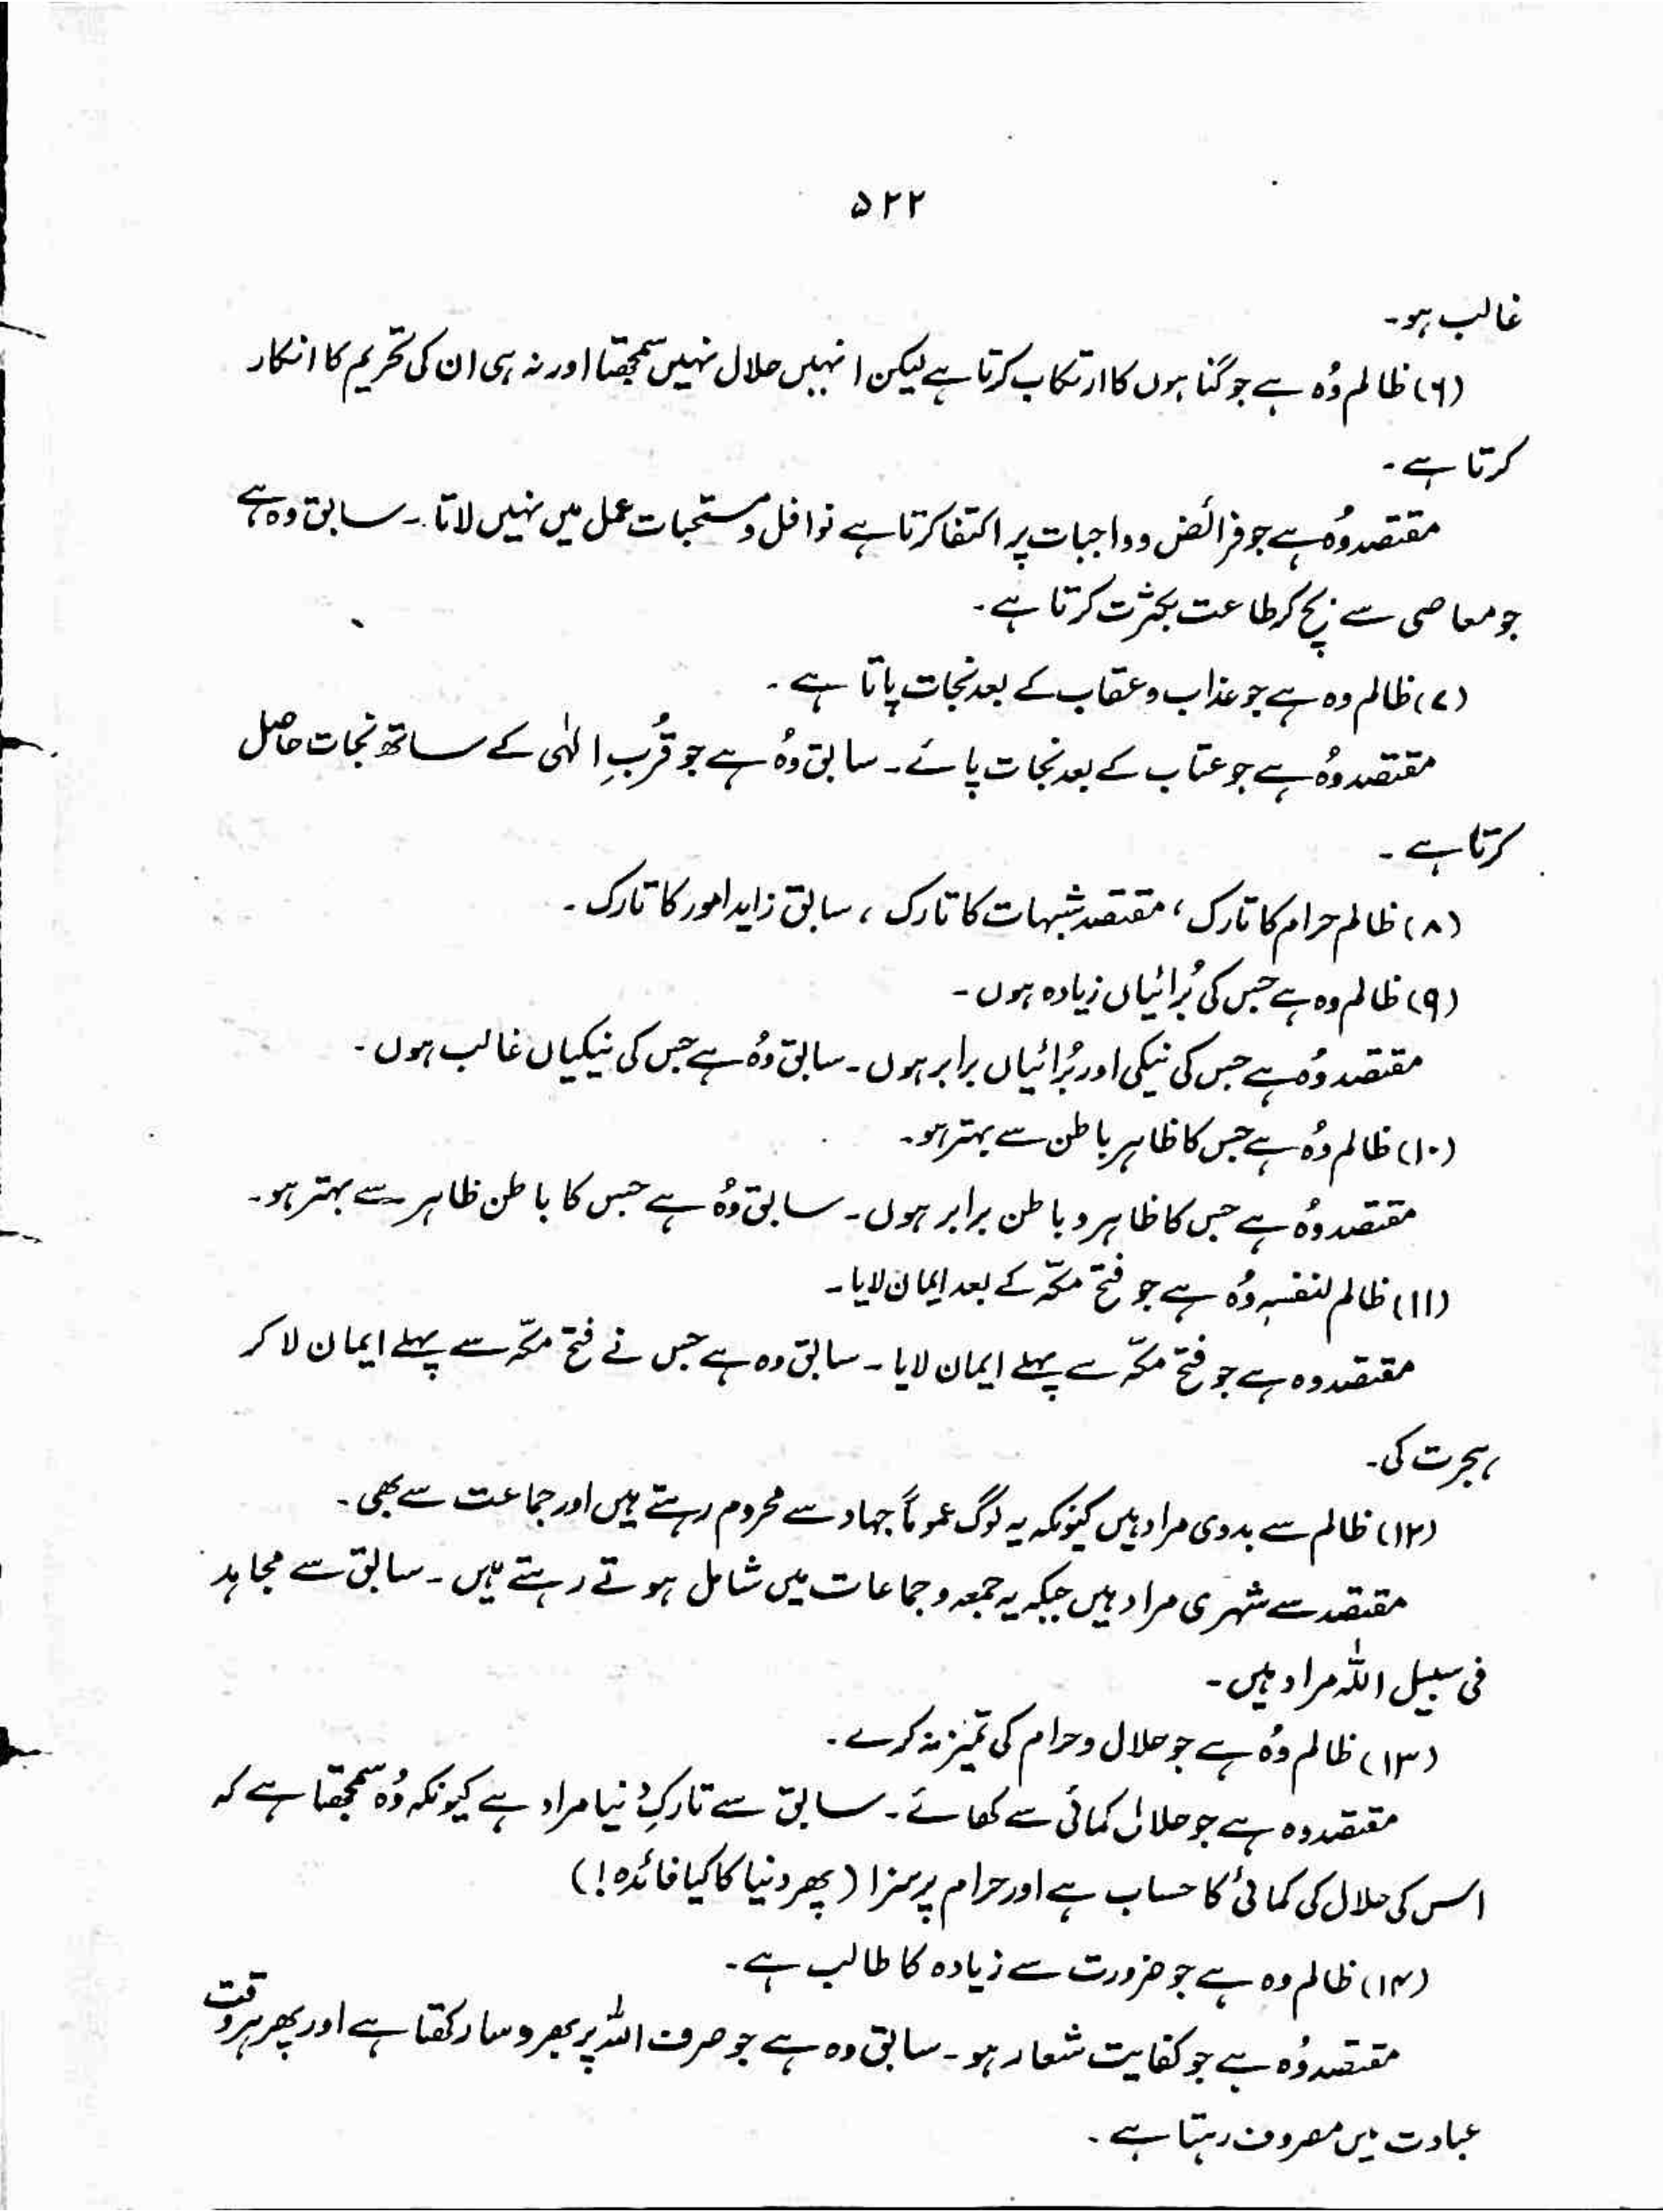 ۵۲۲
غالب ہو۔
(۶) ظالم وُہ ہے جو گناہوں کا ارتکاب کرتا ہے لیکن انہیں حلال نہیں سمجھتا اور نہ ہی ان کی تحریم کا انکار
کرتا ہے۔
مقتصد وُہ ہے جو فرائض و واجبات پر اکتفا کرتا ہے نوافل و مستحبات عمل میں نہیں لاتا۔ سابق وہ ہے
جو معاصی سے بچ کر طاعت بکثرت کرتا ہے۔
(۷) ظالم وہ ہے جو عذاب و عقاب کے بعد نجات پاتا ہے۔
مقتصد وُہ ہے جو عتاب کے بعد نجات پائے۔ سابق وُہ ہے جو قُربِ الٰہی کے ساتھ نجات حاصل
کرتا ہے۔
(۸) ظالم حرام کا تارک، مقتصد شبہات کا تارک، سابق زاید امور کا تارک۔
(۹) ظالم وہ ہے جس کی بُرائیاں زیادہ ہوں۔
مقتصد وُہ ہے جس کی نیکی اور بُرائیاں برابر ہوں۔ سابق وُہ ہے جس کی نیکیاں غالب ہوں۔
(۱۰) ظالم وُہ ہے جس کا ظاہر باطن سے بہتر ہو۔
مقتصد وُہ ہے جس کا ظاہر و باطن برابر ہوں۔ سابق وُہ ہے جس کا باطن ظاہر سے بہتر ہو۔
(۱۱) ظالم لنفسہٖ وُہ ہے جو فتح مکّہ کے بعد ایمان لایا۔
مقتصد وہ ہے جو فتح مکّہ سے پہلے ایمان لایا۔ سابق وہ ہے جس نے فتح مکّہ سے پہلے ایمان لا کر
ہجرت کی۔
(۱۲) ظالم سے بدوی مراد ہیں کیونکہ یہ لوگ عموماً جہاد سے محروم رہتے ہیں اور جماعت سے بھی۔
مقتصد سے شہری مراد ہیں جبکہ یہ جمعہ و جماعات میں شامل ہوتے رہتے ہیں۔ سابق سے مجاہد
فی سبیل اللہ مراد ہیں۔
(۱۳) ظالم وُہ ہے جو حلال و حرام کی تمیز نہ کرے۔
مقتصد وہ ہے جو حلال کمائی سے کھائے۔ سابق سے تارکِ دُنیا مراد ہے کیونکہ وُہ سمجھتا ہے کہ
اس کی حلال کی کمائی کا حساب ہے اور حرام پر سزا (پھر دنیا کا کیا فائدہ!)
(۱۴) ظالم وہ ہے جو ضرورت سے زیادہ کا طالب ہے۔
مقتصد وُہ ہے جو کفایت شعار ہو۔ سابق وہ ہے جو صرف اللہ پر بھروسا رکھتا ہے اور پھر ہر وقت
عبادت میں مصروف رہتا ہے۔